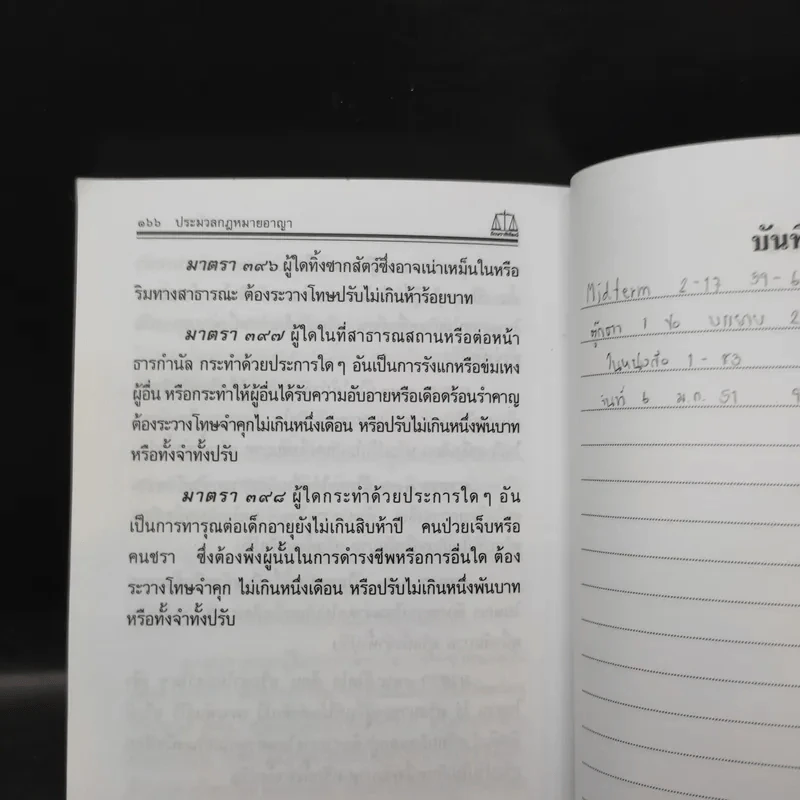 ๑๖๖ ประมวลกฎหมายอาญา
มาตรา ๓๙๖ ผู้ใดทิ้งซากสัตว์ซึ่งอาจเน่าเหม็นในหรือ
ริมทางสาธารณะ ต้องระวางโทษปรับไม่เกินห้าร้อยบาท
มาตรา ๓๙๗ ผู้ใดในที่สาธารณสถานหรือต่อหน้า
ธารกำนัล กระทำด้วยประการใดๆ อันเป็นการรังแกหรือข่มเหง
ผู้อื่น หรือกระทำให้ผู้อื่นได้รับความอับอายหรือเดือดร้อนรำคาญ
ต้องระวางโทษจำคุกไม่เกินหนึ่งเดือน หรือปรับไม่เกินหนึ่งพันบาท
หรือทั้งจำทั้งปรับ
มาตรา ๓๙๘ ผู้ใดกระทำด้วยประการใดๆ อัน
เป็นการทารุณต่อเด็กอายุยังไม่เกินสิบห้าปี คนป่วยเจ็บหรือ
คนชรา ซึ่งต้องพึ่งผู้นั้นในการดำรงชีพหรือการอื่นใด ต้อง
ระวางโทษจำคุก ไม่เกินหนึ่งเดือน หรือปรับไม่เกินหนึ่งพันบาท
หรือทั้งจำทั้งปรับ
Midterm 2-17 39-6
ตุ๊กตา 1 ข้อ บรรยาย 2
ในหนังสือ 1-83
วันที่ 6 ม.ค. 51 9